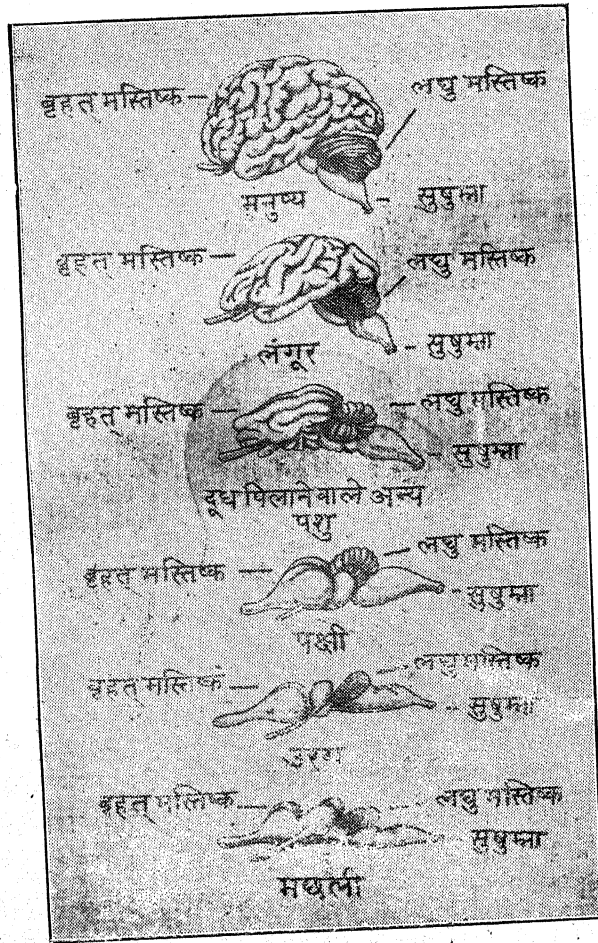 बृहत् मस्तिष्क
लघु मस्तिष्क
सुषुम्ना
मनुष्य
बृहत् मस्तिष्क
लघु मस्तिष्क
सुषुम्ना
लंगूर
बृहत् मस्तिष्क
लघु मस्तिष्क
सुषुम्ना
दूध पिलाने वाले अन्य
पशु
बृहत् मस्तिष्क
लघु मस्तिष्क
सुषुम्ना
पक्षी
बृहत् मस्तिष्क
लघु मस्तिष्क
सुषुम्ना
उरग
बृहत् मस्तिष्क
लघु मस्तिष्क
सुषुम्ना
मछली